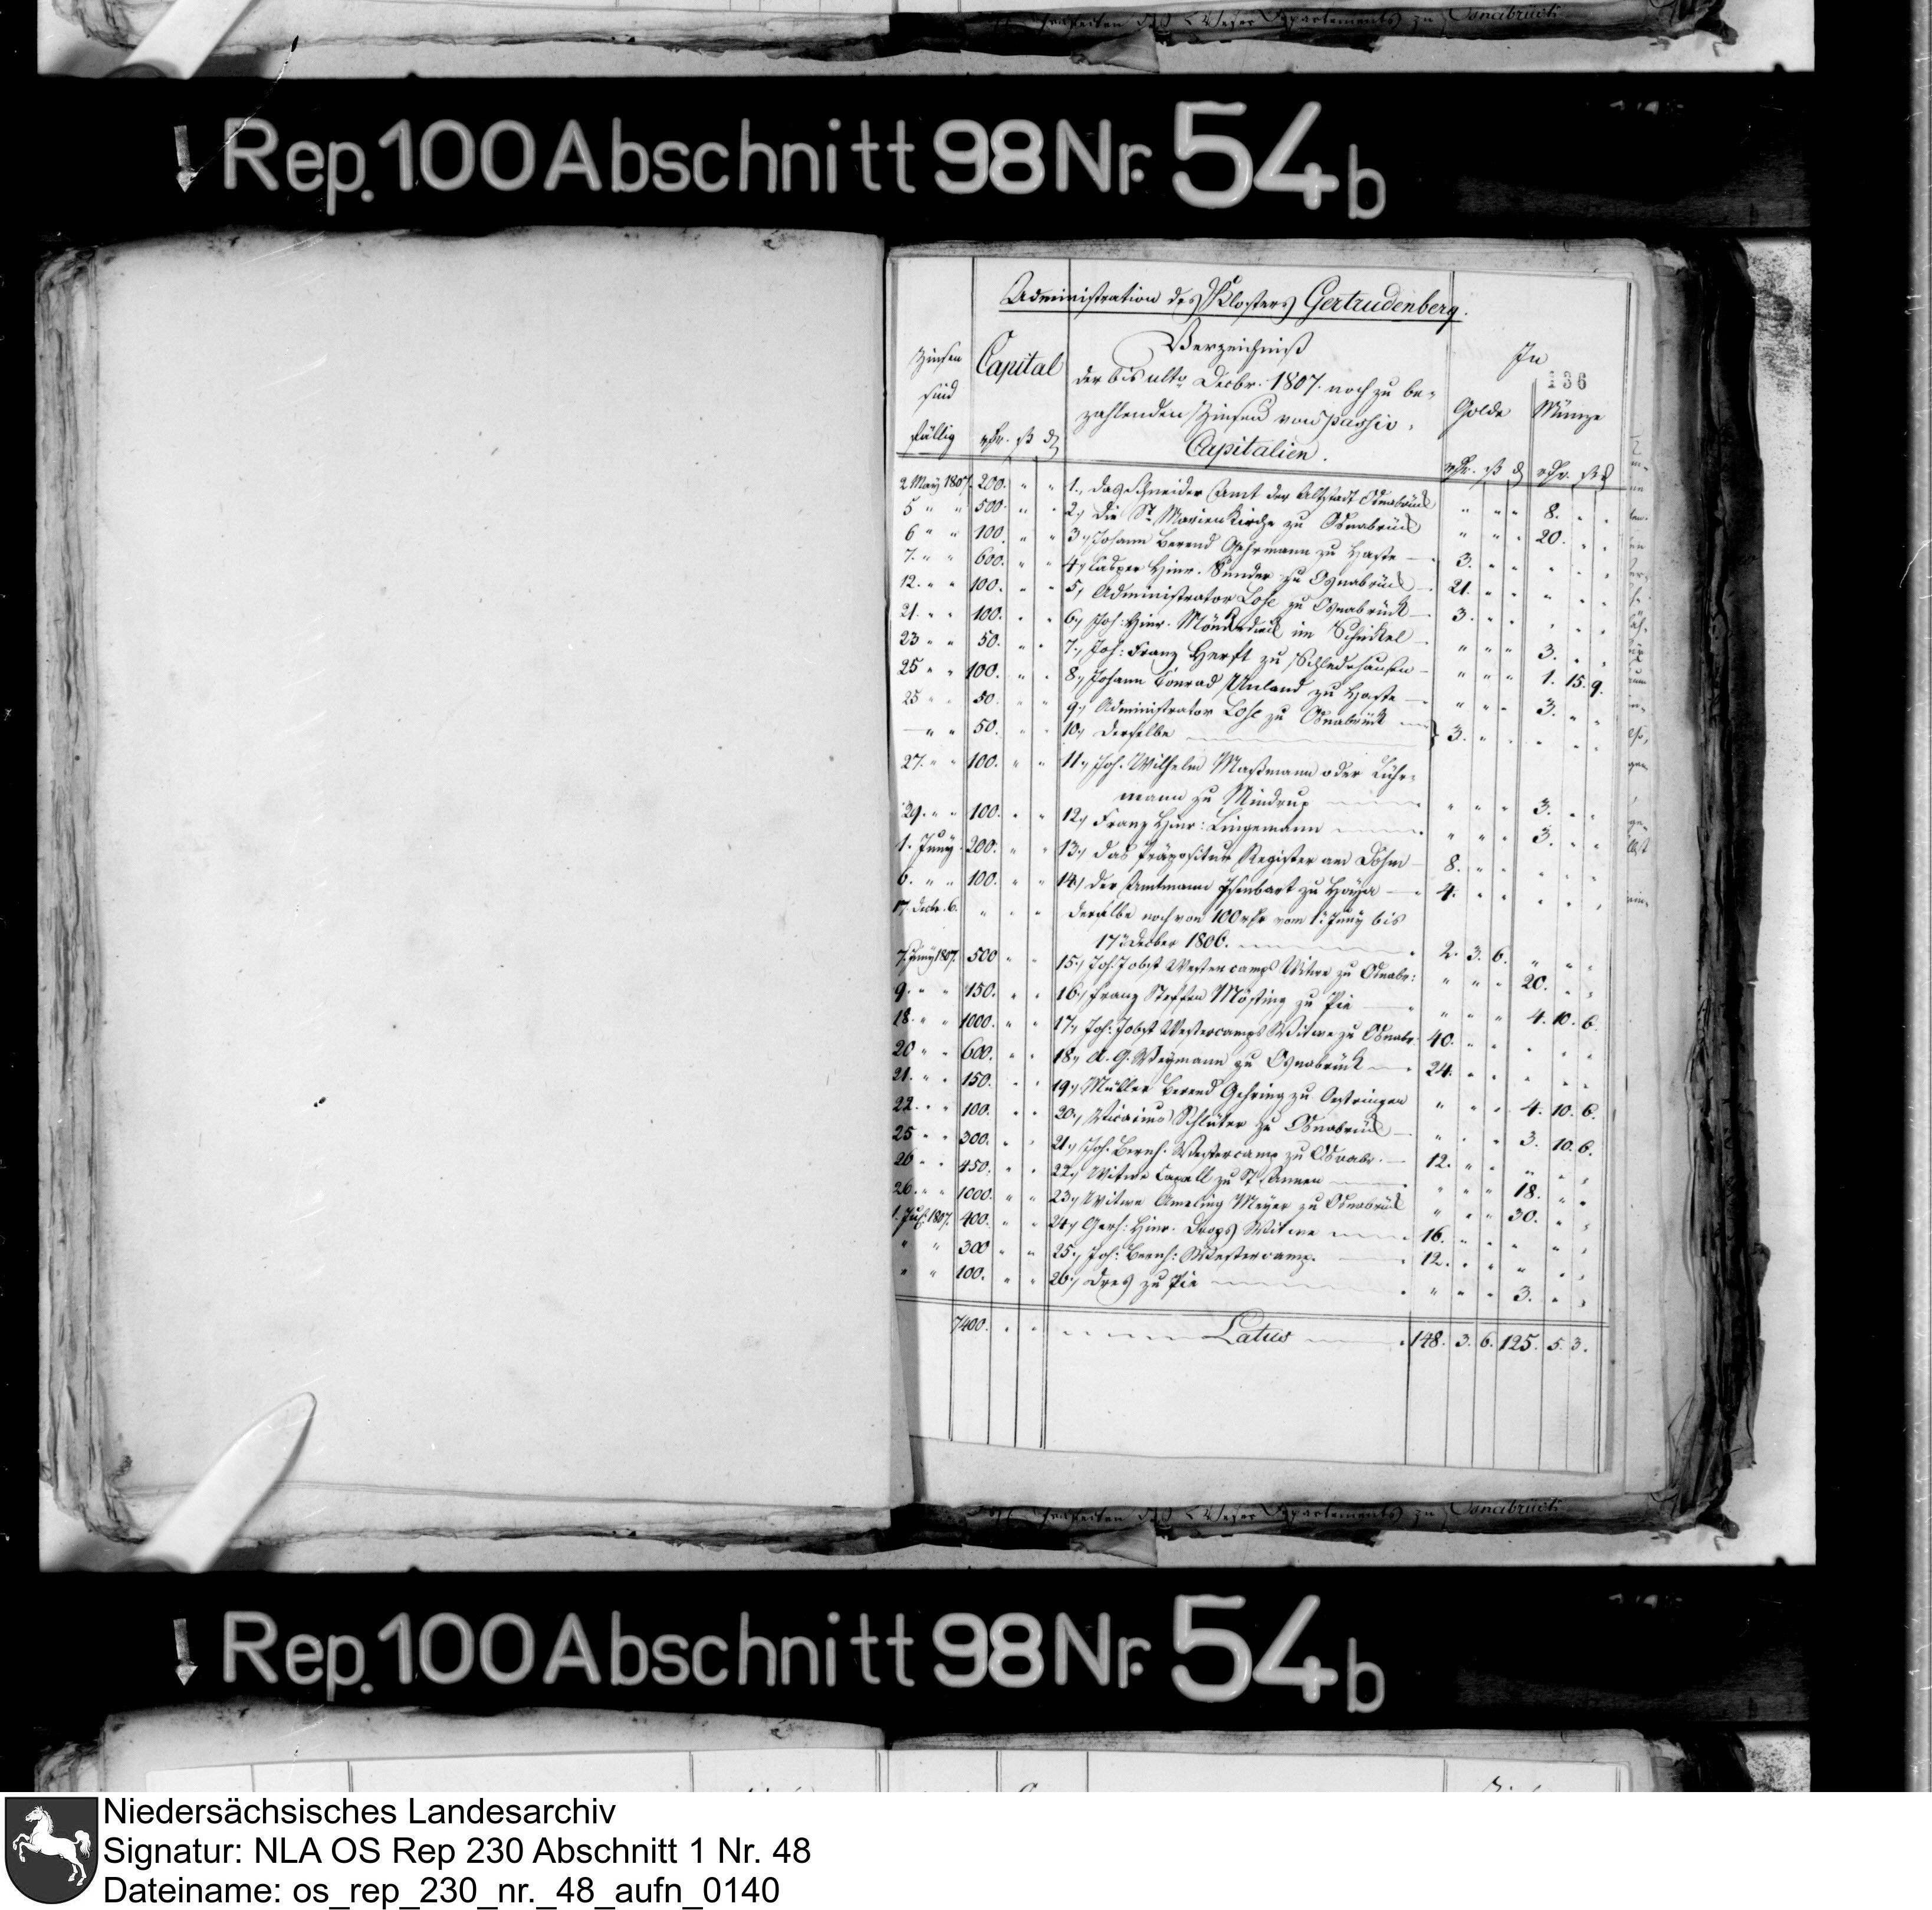 des Weser Departements zu Osnabrück
Rep. 100 Abschnitt 98 Nr. 54 b
Administration des Klosters Gertrudenberg.
Zinsen sind fällig
Capital
rthr. ß d
Verzeichniß
der bis ulto Decbr. 1807. noch zu be-
zahlenden Zinsen von Passiv-
Capitalien.
In
136
Golde Münze
rthr. ß d rthr. ß d
2 May 1807. 200. " " 1., das Schneider Amt der Altstadt Osnabrück " " " 8. " "
5 " " 500. " " 2., Die St. Marien Kirche zu Osnabrück " " " 20. " "
6 " " 100. " " 3., Johann Berend Gehrmann zu Haste 3. " " " " "
7. " " 600. " " 4., Casper Hinr. Sunder zu Osnabrück 21. " " " " "
12. " " 100. " " 5., Administrator Lose zu Osnabrück 3. " " " " "
21. " " 100. " " 6., Joh: Hinr. im Schinkel " " " 3. " "
23 " " 50. " " 7., Joh: Franz Herft zu Schledehausen " " " 1. 15. 9.
25 " " 100. " " 8., Johann Conrad Unland zu Haste " " " 3. " "
25 " " 50. " " 9., Administrator Lose zu Osnabrück
" " 50. " " 10., derselbe } 3. " " " " "
27. " " 100. " " 11., Joh. Wilhelm Maßmann oder Lühr-
mann zu Mindrup " " " 3. " "
29. " " 100. " " 12., Franz Hinr: Lingemann " " " 3. " "
1. Juny 200. " " 13., das Präpositur Register am Dohm 8. " " " " "
6. " " 100. " " 14., der Amtmann Isenbart zu Hoya 4. " " " " "
17. Decbr. 6. " " " derselbe noch von 100 rthr vom 1. Juny bis
17. Decber 1806. 2. 3. 6. " " "
7. Juny 1807. 500 " " 15., Joh. Jobst Westercamps Witwe zu Osnabr: " " " 20. " "
9. " " 150. " " 16., Franz Steffen Mösting zu Pie " " " 4. 10. 6.
18. " " 1000. " " 17., Joh: Jobst Westercamps Witwe zu Osnabr. 40. " " " " "
20 " " 600. " " 18., A. G. Weymann zu Osnabrück 24. " " " " "
21. " " 150. " " 19., Müller Berend Gehring zu Oestringen " " " 4. 10. 6.
22. " " 100. " " 20., Vicarius Schlüter zu Osnabrück " " " 3. 10. 6.
25 " " 300. " " 21., Joh. Bernh. Westercamp zu Osnabr. 12. " " " " "
26 " " 450. " " 22., Witwe Capell zu St. Annen " " " 18. " "
26. " " 1000. " " 23., Witwe Ameling Meyer zu Osnabrück " " " 30. " "
1. Jul. 1807. 400. " " 24., Gerh: Hinr. Droops Witwe 16. " " " " "
" " 300 " " 25., Joh: Bernh: Westercamp. 12. " " " " "
" " 100. " " 26., Dres zu Pie " " " 3. " "
7400. " " Latus 148. 3. 6. 125. 5. 3.
des Weser Departements zu Osnabrück
Rep. 100 Abschnitt 98 Nr. 54 b
Niedersächsisches Landesarchiv
Signatur: NLA OS Rep 230 Abschnitt 1 Nr. 48
Dateiname: os_rep_230_nr._48_aufn_0140